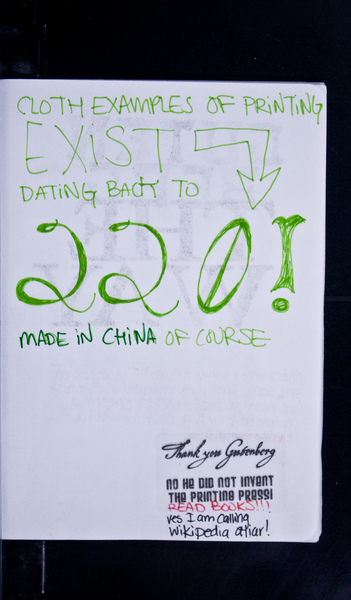 CLOTH EXAMPLES OF PRINTING
EXIST
DATING BACK TO
220!
MADE IN CHINA OF COURSE
Thank you Gutenberg
no He DID NOT INVENT
THE PRINTING PRESS!
READ BOOKS!!!
yes I am calling
Wikipedia a liar!